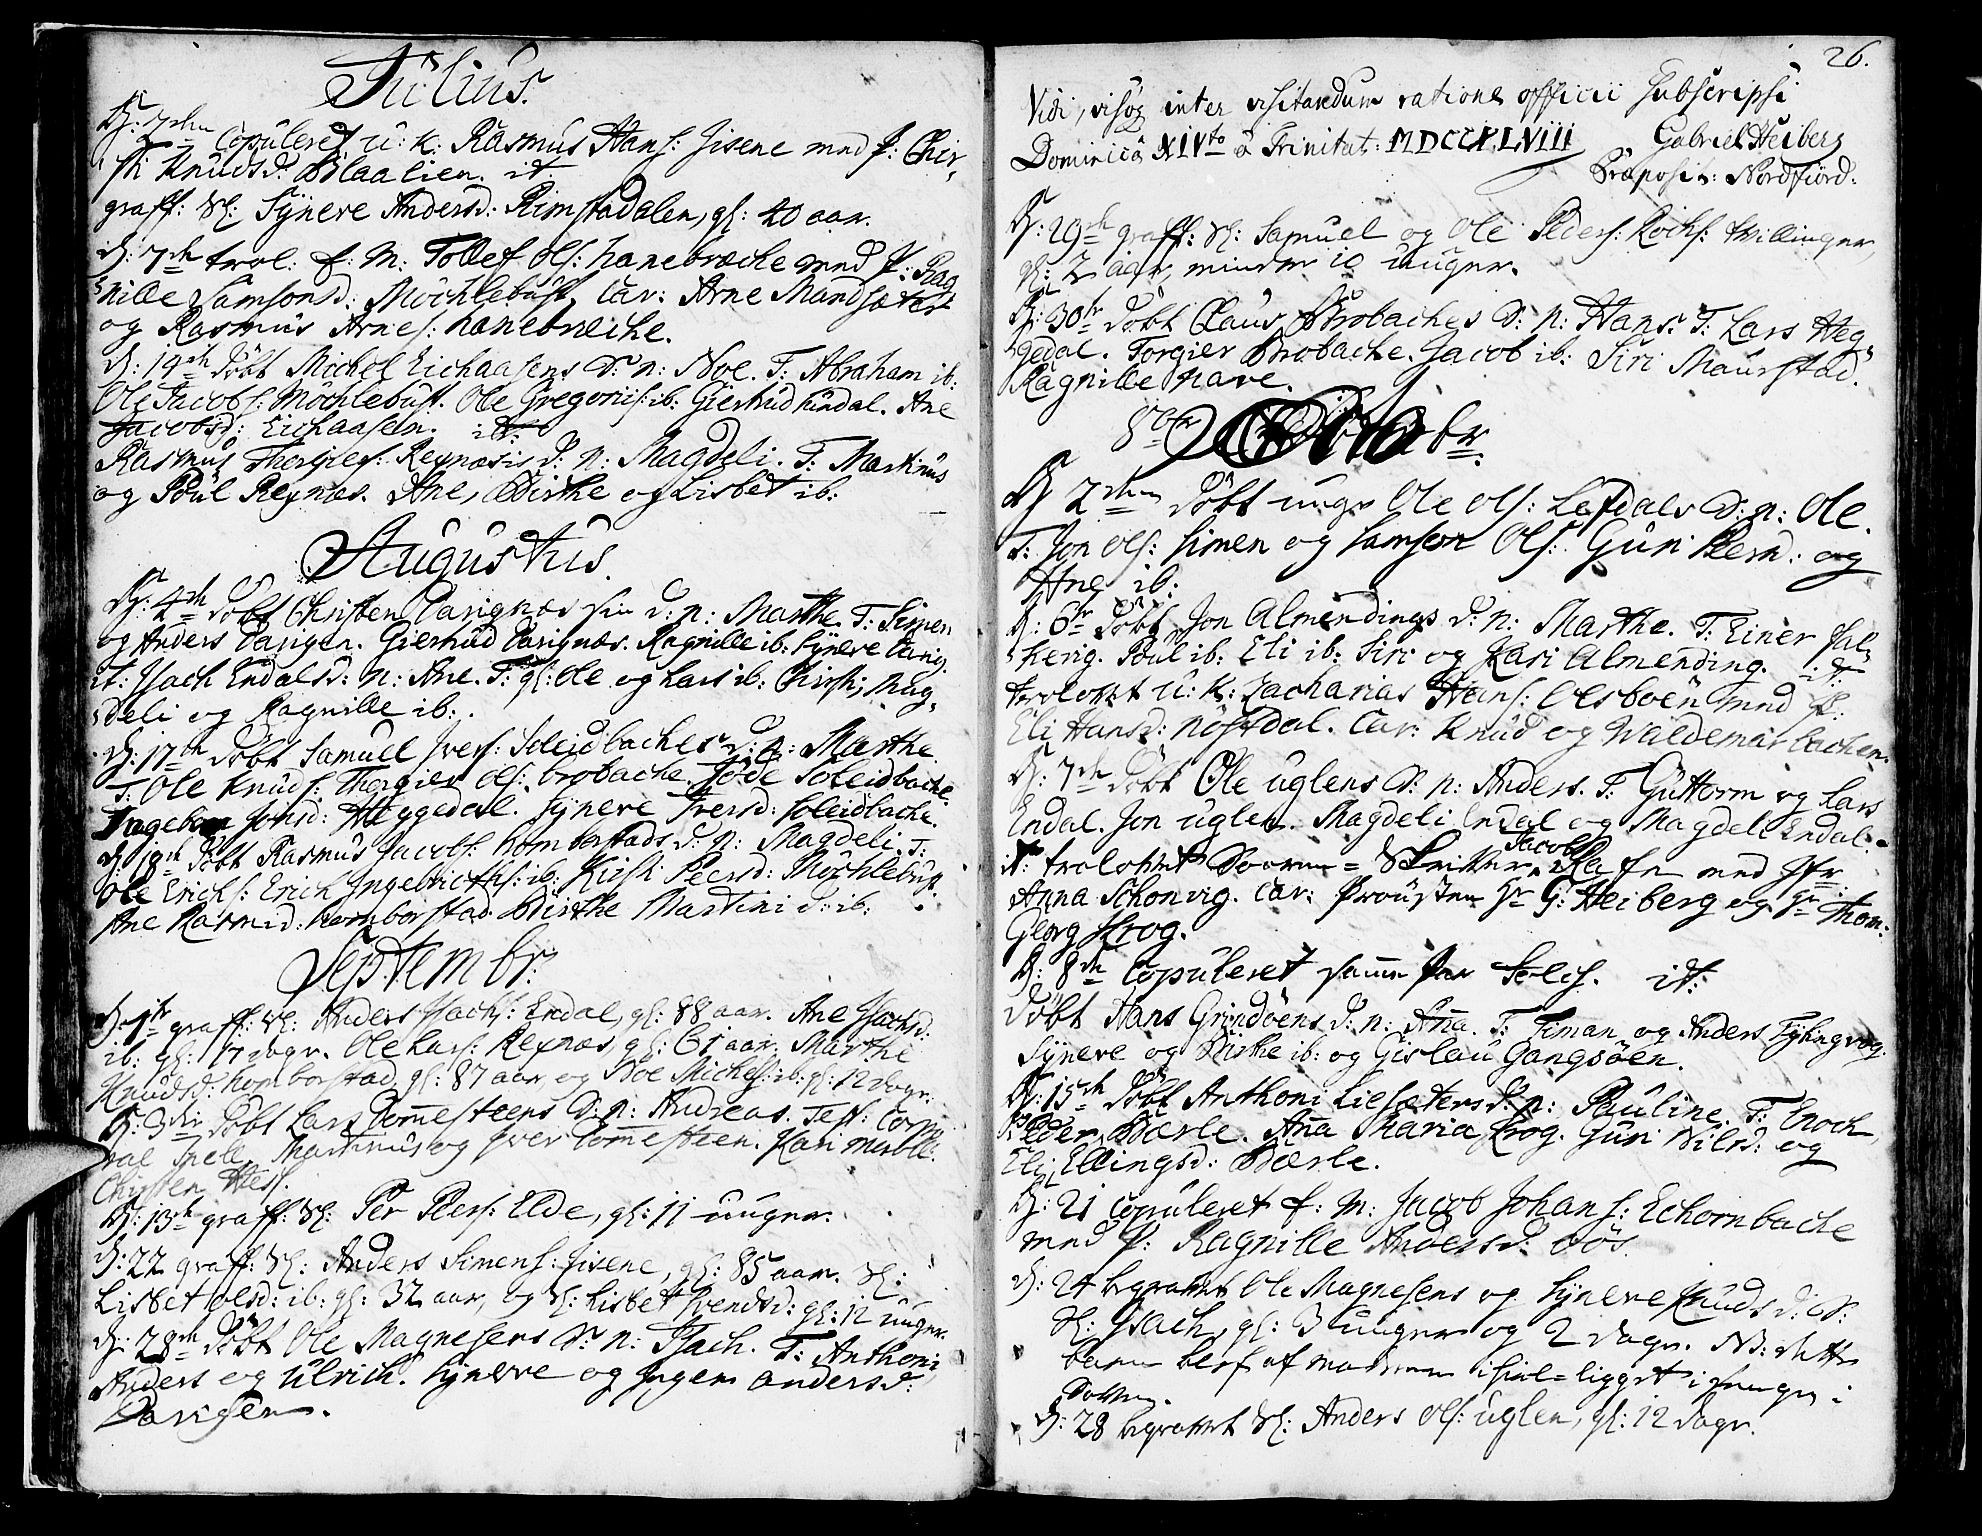 Julius.
D: 7den Copuleret u: k: Rasmus Hans: Jisene med P: Chir-
sti Knudsd: Blaalien. it:
graff: Sl: Synere Andersd: Rimstadalen, gl: 40 aar.
D: 7de trol: f: M: Tollef Ols: hanebreche med P: Rag-
nille Samsonsd: Mochlebust, Cav: Arne Mandsæter
og Rasmus Arnes: hanebreche.
D: 14de döbt Michel Eichaasens D: n: Noe. T: Abraham ib:
Ole Jacobs: Möchlebust. Ole Gregoris: ib: Giertrud Lundal. Ane
Jacobsd: Eichaasen. it:
Rasmus Thergies: Reynæsis d: n: Magdeli. T: Martinus
og Poul Reynæs. Ane, Birthe og Lisbet ib:
Augustus.
D: 4de Döbt Christen Varignæs sin d: n: Marthe. T: Simen
og Anders Varigen. Giertrud Varignæs. Ragnille ib: Synere Varig.
it: Isach Endalsd: n: Ane. T: gl: Ole og Lars ib: Chirsti, Mag-
deli og Ragnille ib:
D: 17de Döbt Samuel Ivers: Soleidbaches d: n: Marthe
T: Ole Knuds: Thorgier Ols: brobache. Jöde Soleidbache.
Ingebor Johsd: Heggedal. Synere Iversd: Soleidbache.
D: 18de Döbt Rasmus Jacobs: homborstads d: n: Magdeli. T:
Ole Erichs: Erich Ingebricths: ib: Kirsti Peersd: Mochlebust.
Ane Rasmusd: homborstad. Birthe Martini d: ib:
Septembr:
D: 1te graff: Sl: Anders Isachs: Endal, gl: 88 aar. Ane Isachsd.
ib: gl: 17 dage. Ole Lars: Reynæs, gl: 61 aar. Marthe
Knudsd: homborstad, gl: 87 aar, og Noe Michels: ib: gl: 12 dage.
D: 3die Döbt Lars Tommesteens D: n: Andreas. Test: Corpo-
ral Inell. Martinus og Iver Tommesteen. Kari
Christen Hess.
D: 13de graff: Sl: Per Peers: Elde, gl: 11 uger.
D: 22 graff: Sl: Anders Simens: Jisene, gl: 85 aar. Sl:
Lisbet Olsd: ib: gl: 32 aar, og Sl: Lisbet Svendsd: gl: 12 uger.
D: 28de Döbt Ole Magnesens D: n: Isach. T: Anthoni,
Anders og Ulrich. Synere og Ingen Andersd:
Varigen.
26.
Vidi, visoq inter visitandum ratione officii subscripsi
Dominicâ XIVto â Trinitat: MDCCXLVIII Gabriel Heiberg
Præposit: Nordfiord:
D: 29de graff: Sl: Samuel og Ole Peders: Kochs: tvillinger,
gl: 2 aar, mindre 10 uger.
D: 30te döbt Claus Brobaches D: n: Hans. T: Lars Heg-
gedal. Torgier Brobache. Jacob ib: Siri Maurstad.
Ragnille Nave.
8br Octobr.
D: 2den Döbt unge Ole Ols: Lefdals D: n: Ole.
T: Jon Ols: Simen og Samson Ols: Guri Peersd: og
Ane ib:
D: 6te Döbt Jon Almendings d: n: Marthe. T: Einer Sal-
therig. Poul ib: Eli ib: Siri og Kari Almending. it:
trolovet u: k: Zacharias Hans: Olsboen med P:
Eli Hansd: Nöstdal. Cav: Knud og Waldemar Lachen.
D: 7de Döbt Ole Uglens D: n: Anders. T: Guttorm og Lars
Endal. Jon Uglen. Magdeli Endal og Magdeli Endal.
it: trolovet Soren=Skriver Jacob Hafn med Jfr
Anna Schonvig. Cav: Provsten Hr G: Heiberg og Hr Thom:
Georg Krog.
D: 8de Copuleret samme par Folch. it:
Döbt Hans Grindöens d: n: Anna. T: Timan og Anders Tythingvog.
Synere og Birthe ib: og Gislau Gangsöen.
D: 15de Döbt Anthoni Liesæters d: n: Pauline. T: Enoch,
Peder Bærle. Anna Maria Krog. Guri Nilsd: og
Eli Ellingsd: Bærle.
D: 21 Copuleret f: M: Jacob Johans: Echornbache
med P: Ragnille Andersd: Oös.
D: 24 begravet Ole Magnesens og Synere Knuds d: S:
Sl: Isach, gl: 3 uger og 2 dage. NB: dette
barn blef af moderen ihiel=ligget i sengen i
Sövne.
D: 28 begravet Sl: Anders Ols: Uglen, gl: 12 dage.